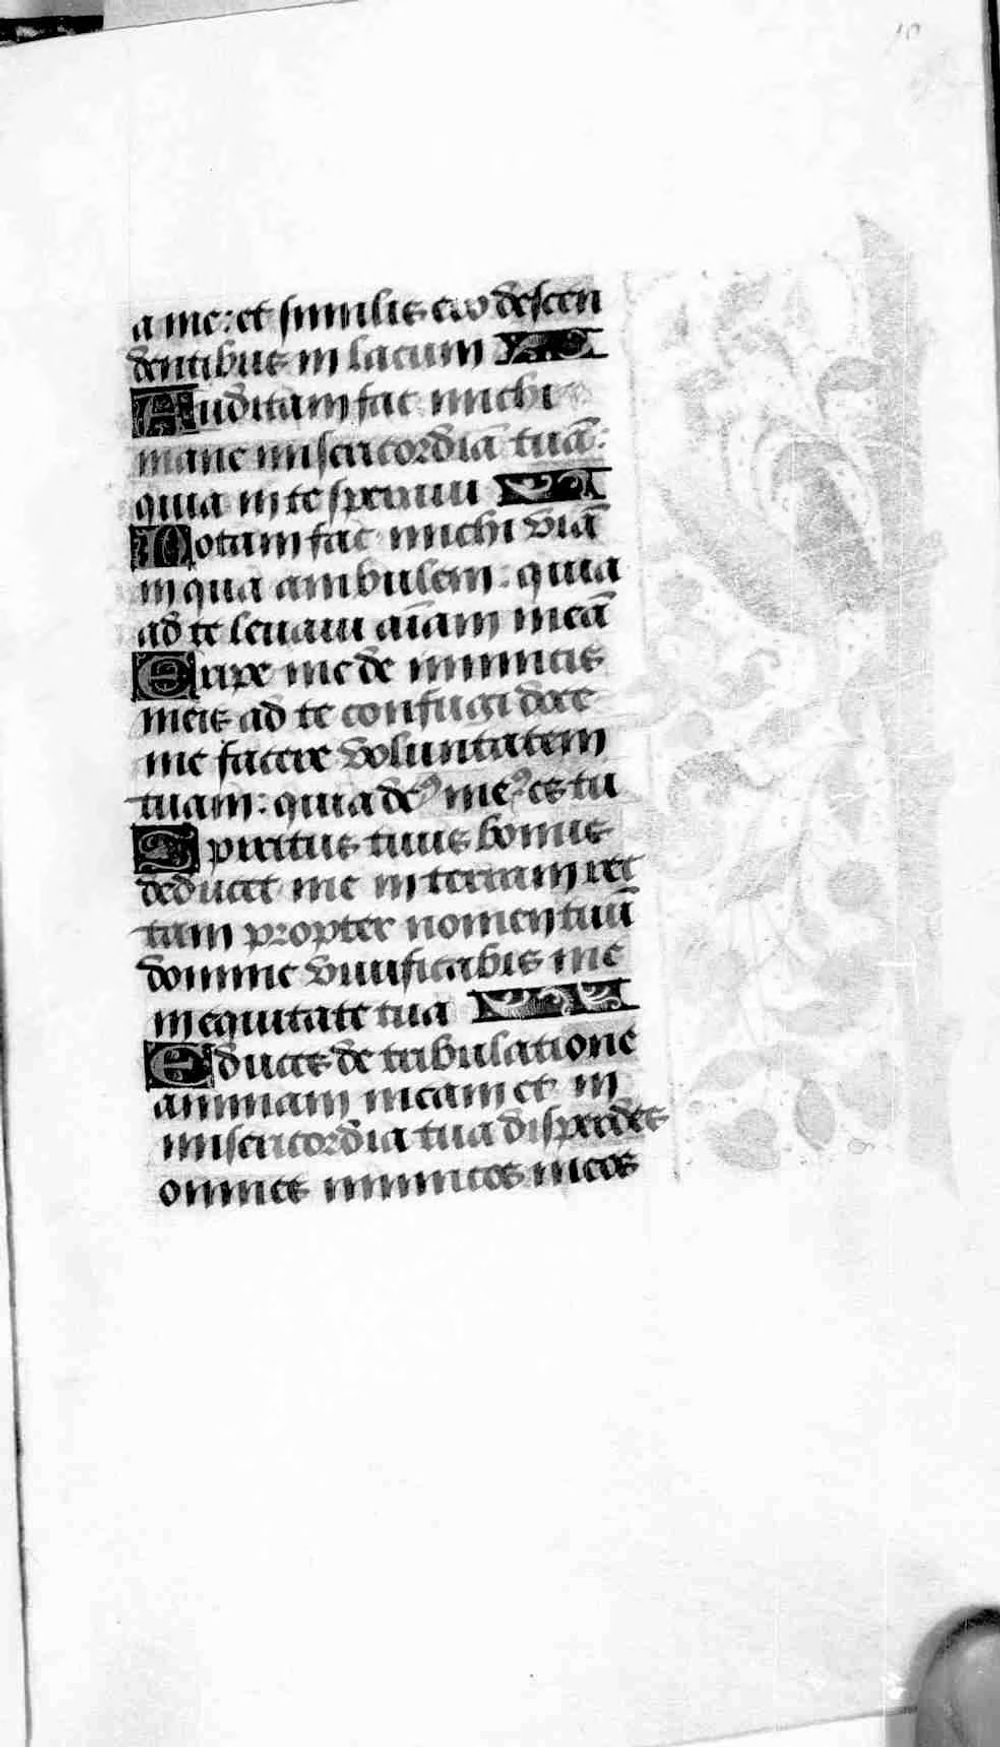 10
a me: et similis ero descen
dentibus in lacum
Auditam fac michi
mane misericordiā tuā:
quia in te speravi
Notam fac michi viā
in qua ambulem: quia
ad te levavi aīam meā
Eripe me de inimicis
meis ad te confugi doce
me facere voluntatem
tuam: quia deꝰ meꝰ es tu
Spiritus tuus bonus
deducet me in terram rec
tam propter nomen tuū
domine vivificabis me
in equitate tua
Educes de tribulatione
animam meam et in
misericordia tua disperdes
omnes inimicos meos